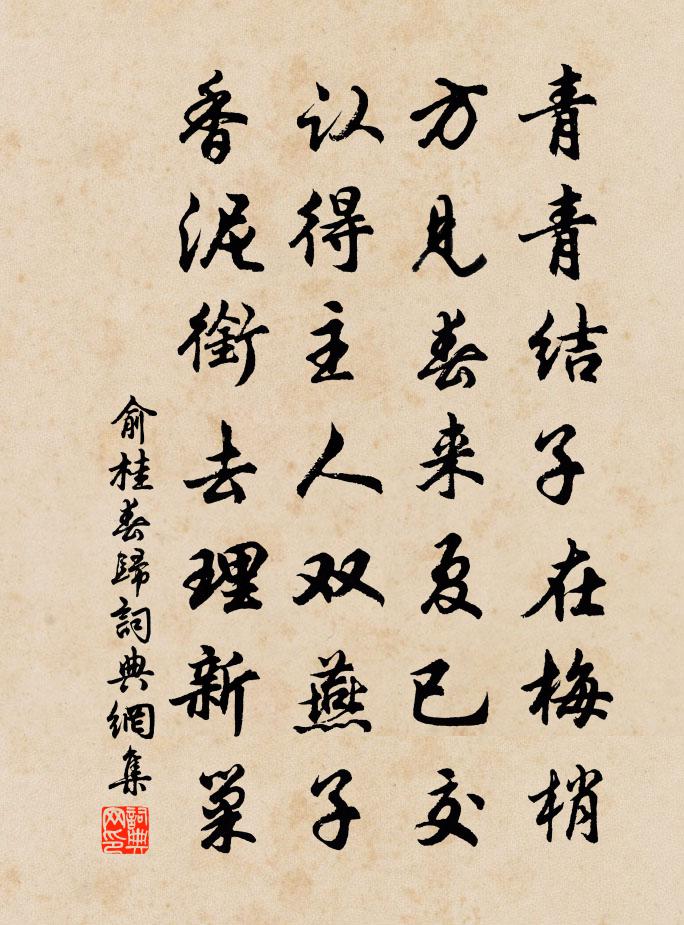 青青结子在梅梢
方见春来夏已交
认得主人双燕子
香泥衔去理新巢
俞桂春歸詞典網集
詞典网印